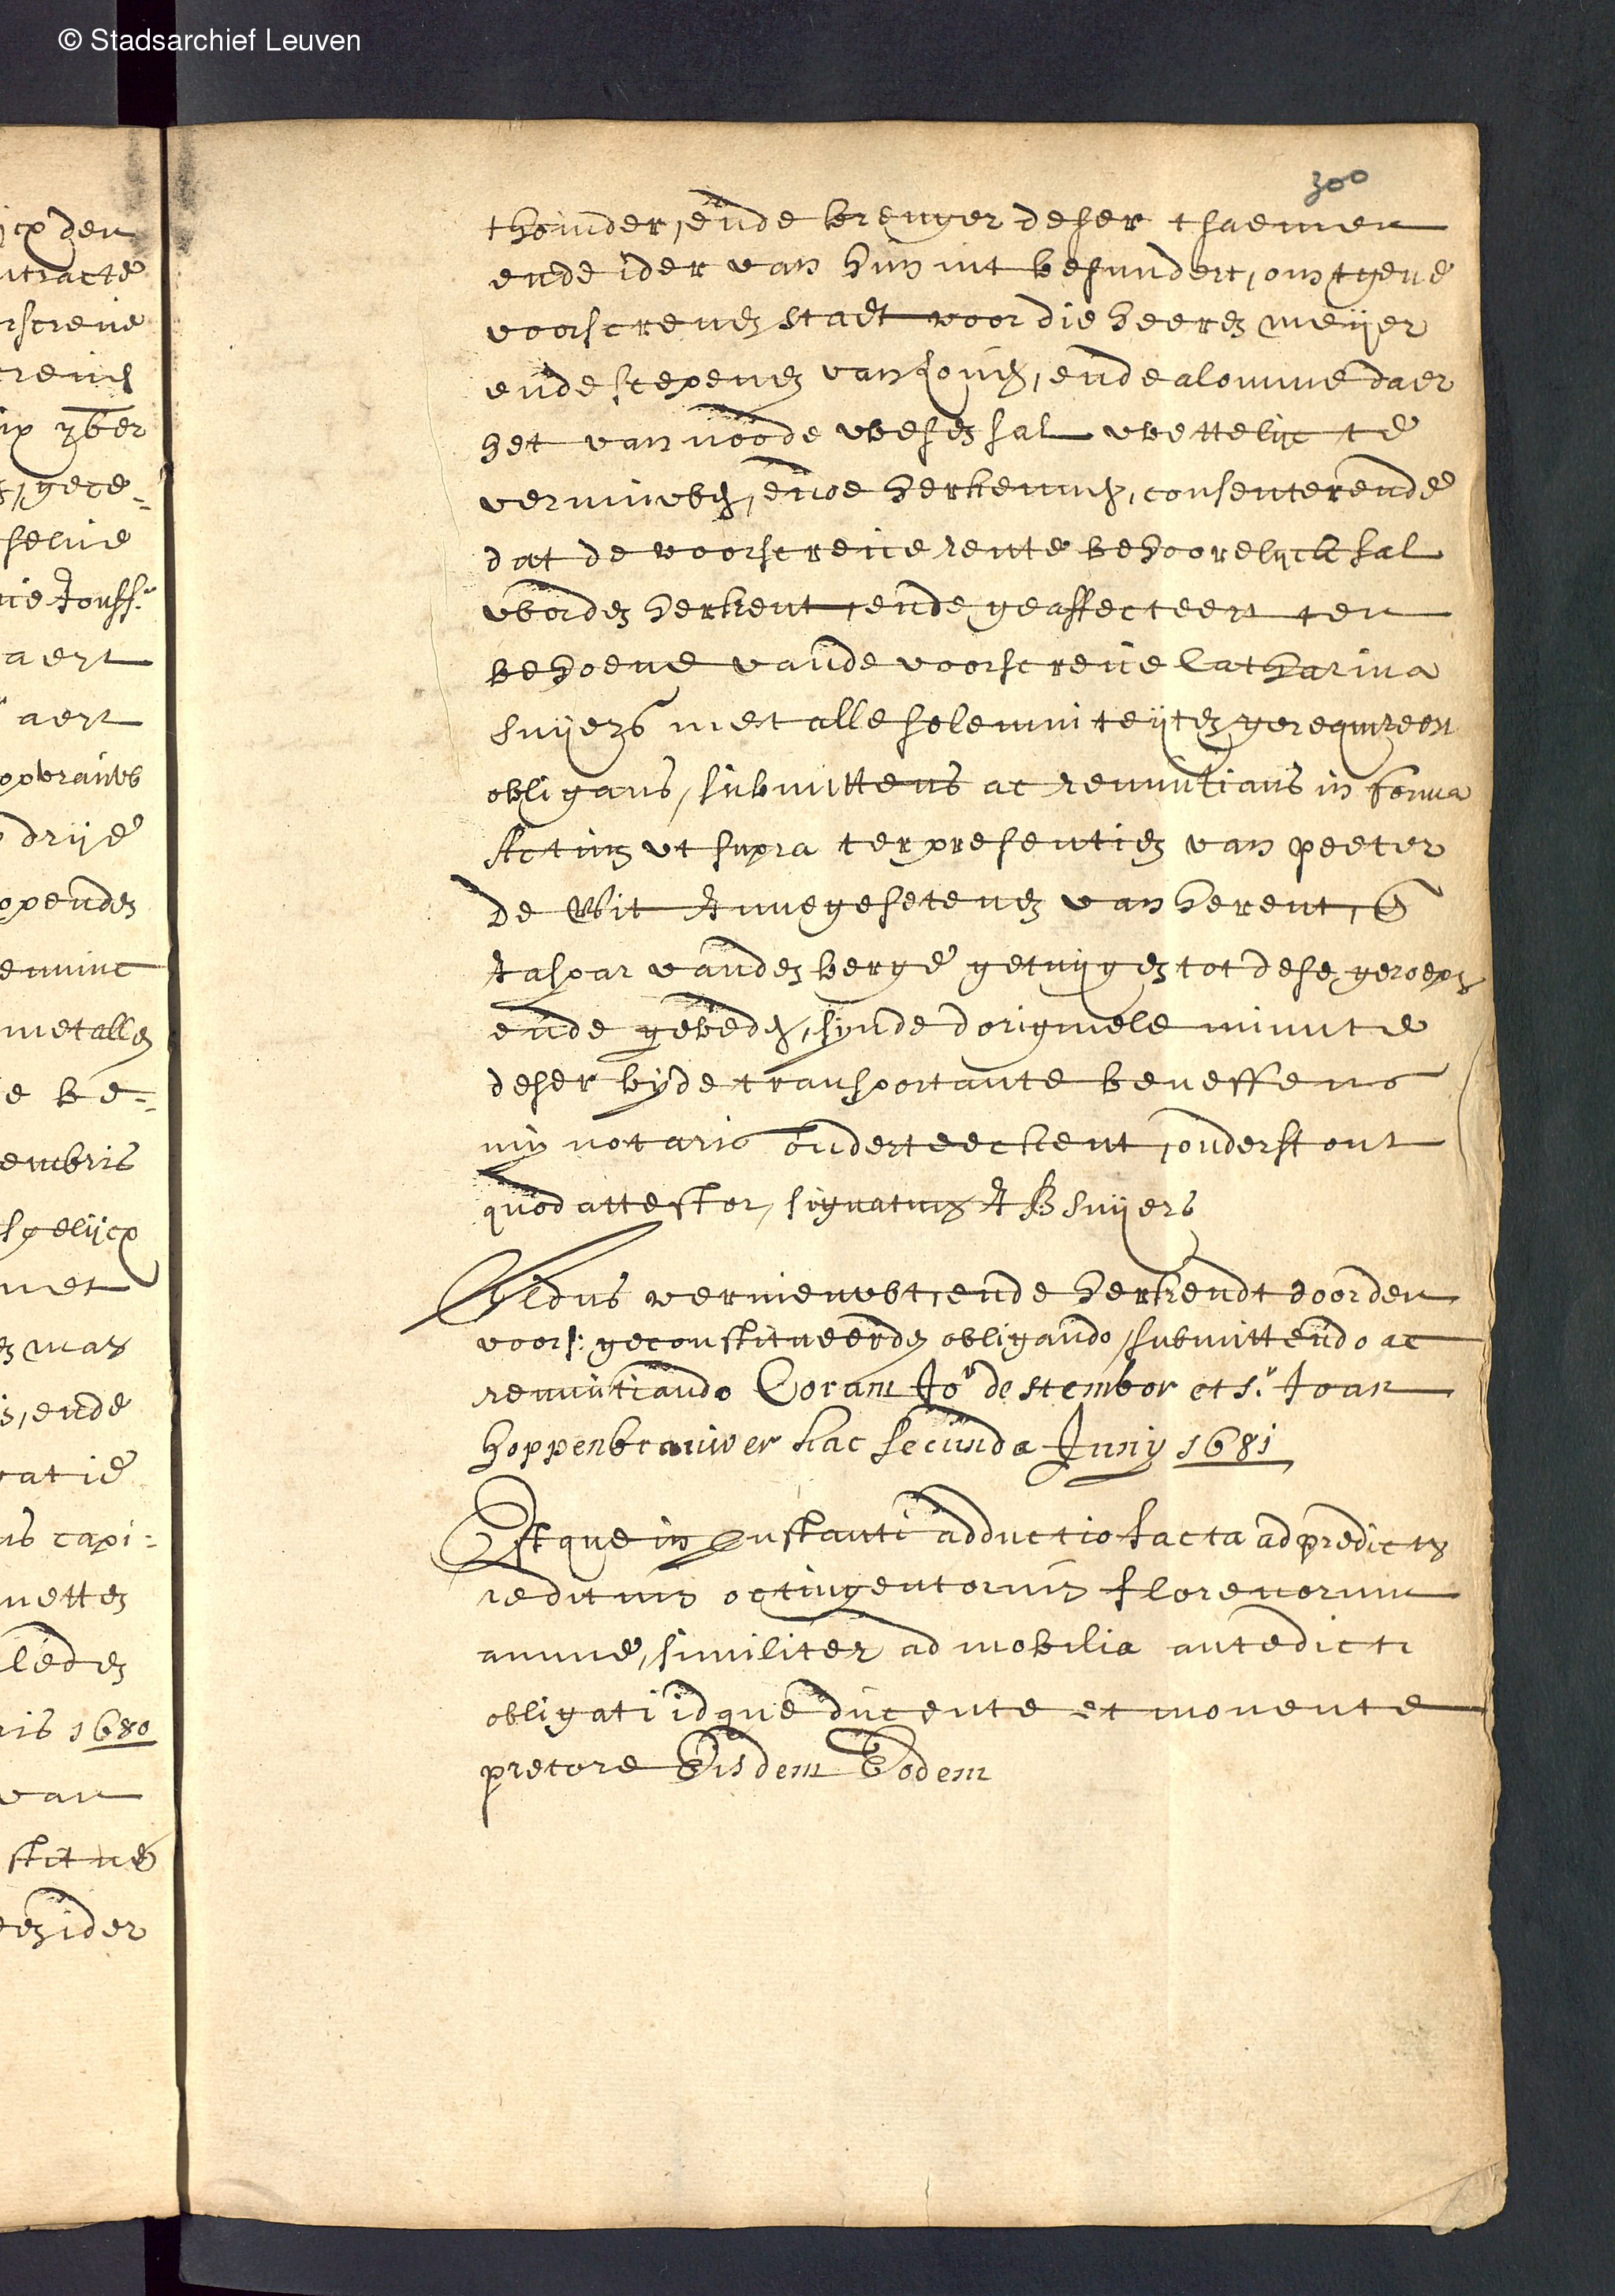 © Stadsarchief Leuven
300
thoinder, ende brenger deser tsaemen
ende ider van hun int besundert, om tgene
voorscreven staet voor die heeren meijer
ende scepenen van Loven, ende alomme daer
het van noode wesen sal wettelijc te
vernuiwen, ende herkennen, consenterende
dat de voorscreve rente behoorelijck sal
worden herkent, ende geaffecteert ten
behoeve vande voorscreve Catharina
snijers met alle solemniteijten gerequireert
obligans, submittens ac renuntians in forma
Actum ut supra ter presentien van peeter
de Wit Innegesetenen van herent, en
Jaspar vanden berge getuijgen tot dese geroepen
ende gebeden, sijnde d'originele minute
deser bijde transportante beneffens
mij notaris onderteeckent, onderstont
quod attestor, signatum J B snijers
Aldus vernieuwt, ende herkendt door den
voors: geconstitueerden obligando, submittendo ac
renuntiando Coram Jor de stembor et sr Joan
Hoppenbrauwer hac secunda Junij 1681
Estque in Instanti adductio facta ad predictum
redituum octingentorum florenorum
annue, similiter ad mobilia antedicti
obligati idque ducente et monente
pretore Eisdem Eodem
jcx den
ntracte
rscreve
aert
aert
drije
openden
met allen
e be=
embris
sgelijcx
met
ende
ratie
us capi:
letten
leden
ris 1680
van
stitue
ider